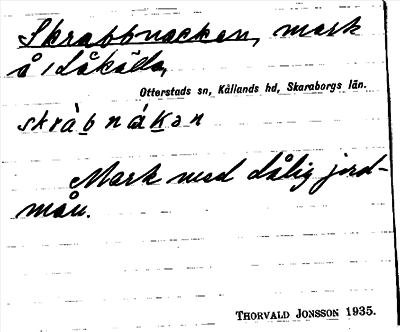 Skrabbnacken, mark
å Låkåda,
Otterstads sn, Kållands hd, Skaraborgs län.
skràbnákən
Mark med dålig jord-
mån.
THORVALD JONSSON 1935.